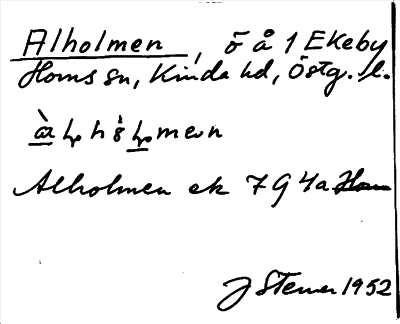 Alholmen, ö å 1 Ekeby
Horns sn, Kinda hd, Östg. l.
Alholmen ek 7G4a
J Stener 1952